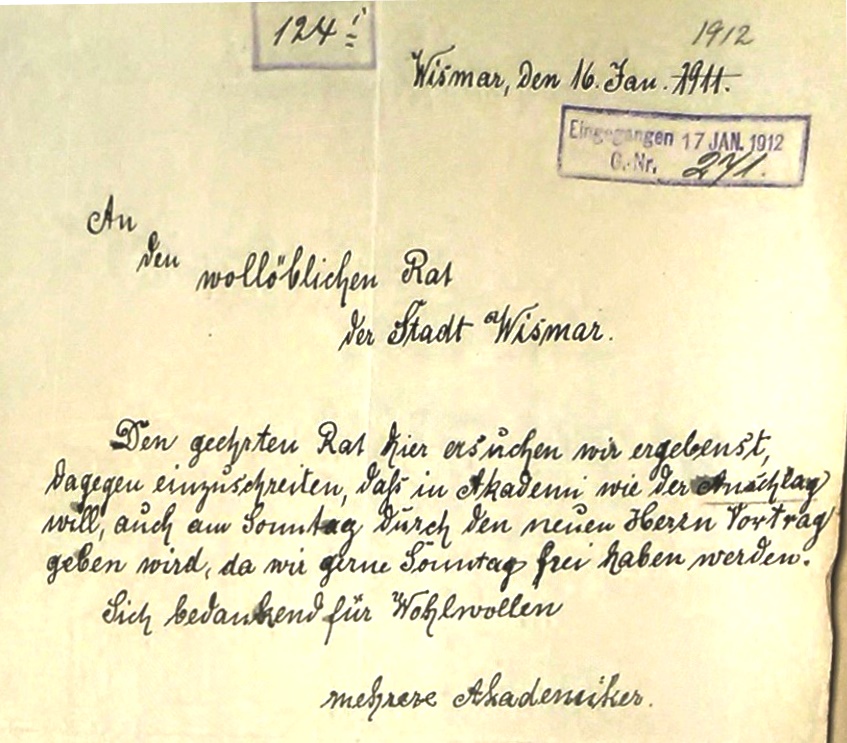 124 i
1912
Wismar, den 16. Jan. 1911.
Eingegangen 17 JAN. 1912
G.-Nr. 271.
An
den wollöblichen Rat
der Stadt Wismar.
Den geehrten Rat hier ersuchen wir ergebenst,
dagegen einzuschreiten, daß in Akademi wie der Anschlag
will, auch am Sonntag durch den neuen Herrn Vortrag
geben wird, da wir gerne Sonntag frei haben werden.
Sich bedankend für Wohlwollen
mehrere Akademiker.